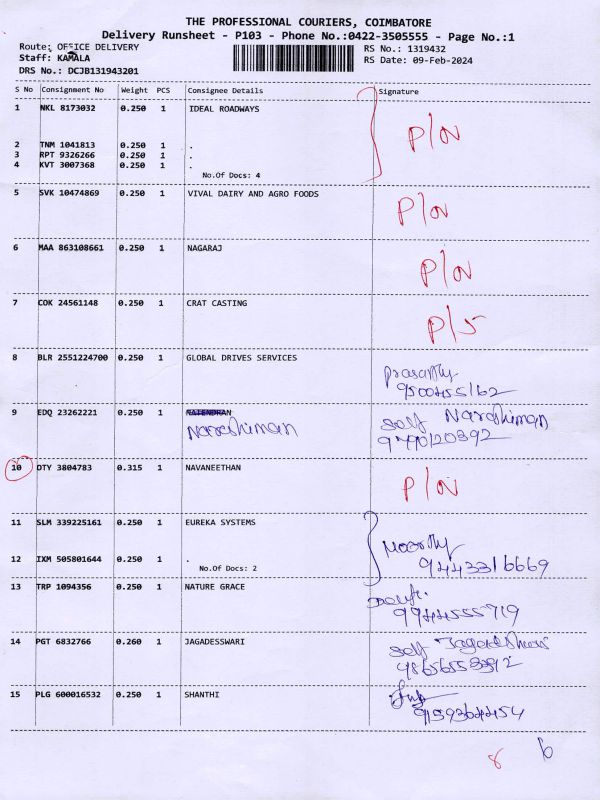 THE PROFESSIONAL COURIERS, COIMBATORE
Delivery Runsheet - P103 - Phone No.:0422-3505555 - Page No.:1
Route: OFFICE DELIVERY RS No.: 1319432
Staff: KAMALA RS Date: 09-Feb-2024
DRS No.: DCJB131943201
S No Consignment No Weight PCS Consignee Details Signature
1 NKL 8173032 0.250 1 IDEAL ROADWAYS
P/N
2 TNM 1041813 0.250 1 .
3 RPT 9326266 0.250 1 .
4 KVT 3007368 0.250 1 .
No.Of Docs: 4
5 SVK 10474869 0.250 1 VIVAL DAIRY AND AGRO FOODS
P/N
6 MAA 863108661 0.250 1 NAGARAJ
P/N
7 COK 24561148 0.250 1 CRAT CASTING
P/S
8 BLR 2551224700 0.250 1 GLOBAL DRIVES SERVICES
9500455162
9 EDQ 23262221 0.250 1
Narashiman self Narashiman
10 DTY 3804783 0.315 1 NAVANEETHAN
P/N
11 SLM 339225161 0.250 1 EUREKA SYSTEMS
Moorthy
12 IXM 505801644 0.250 1 .
9443316669
No.Of Docs: 2
13 TRP 1094356 0.250 1 NATURE GRACE
9944555719
14 PGT 6832766 0.260 1 JAGADESSWARI
self
15 PLG 600016532 0.250 1 SHANTHI
8 6